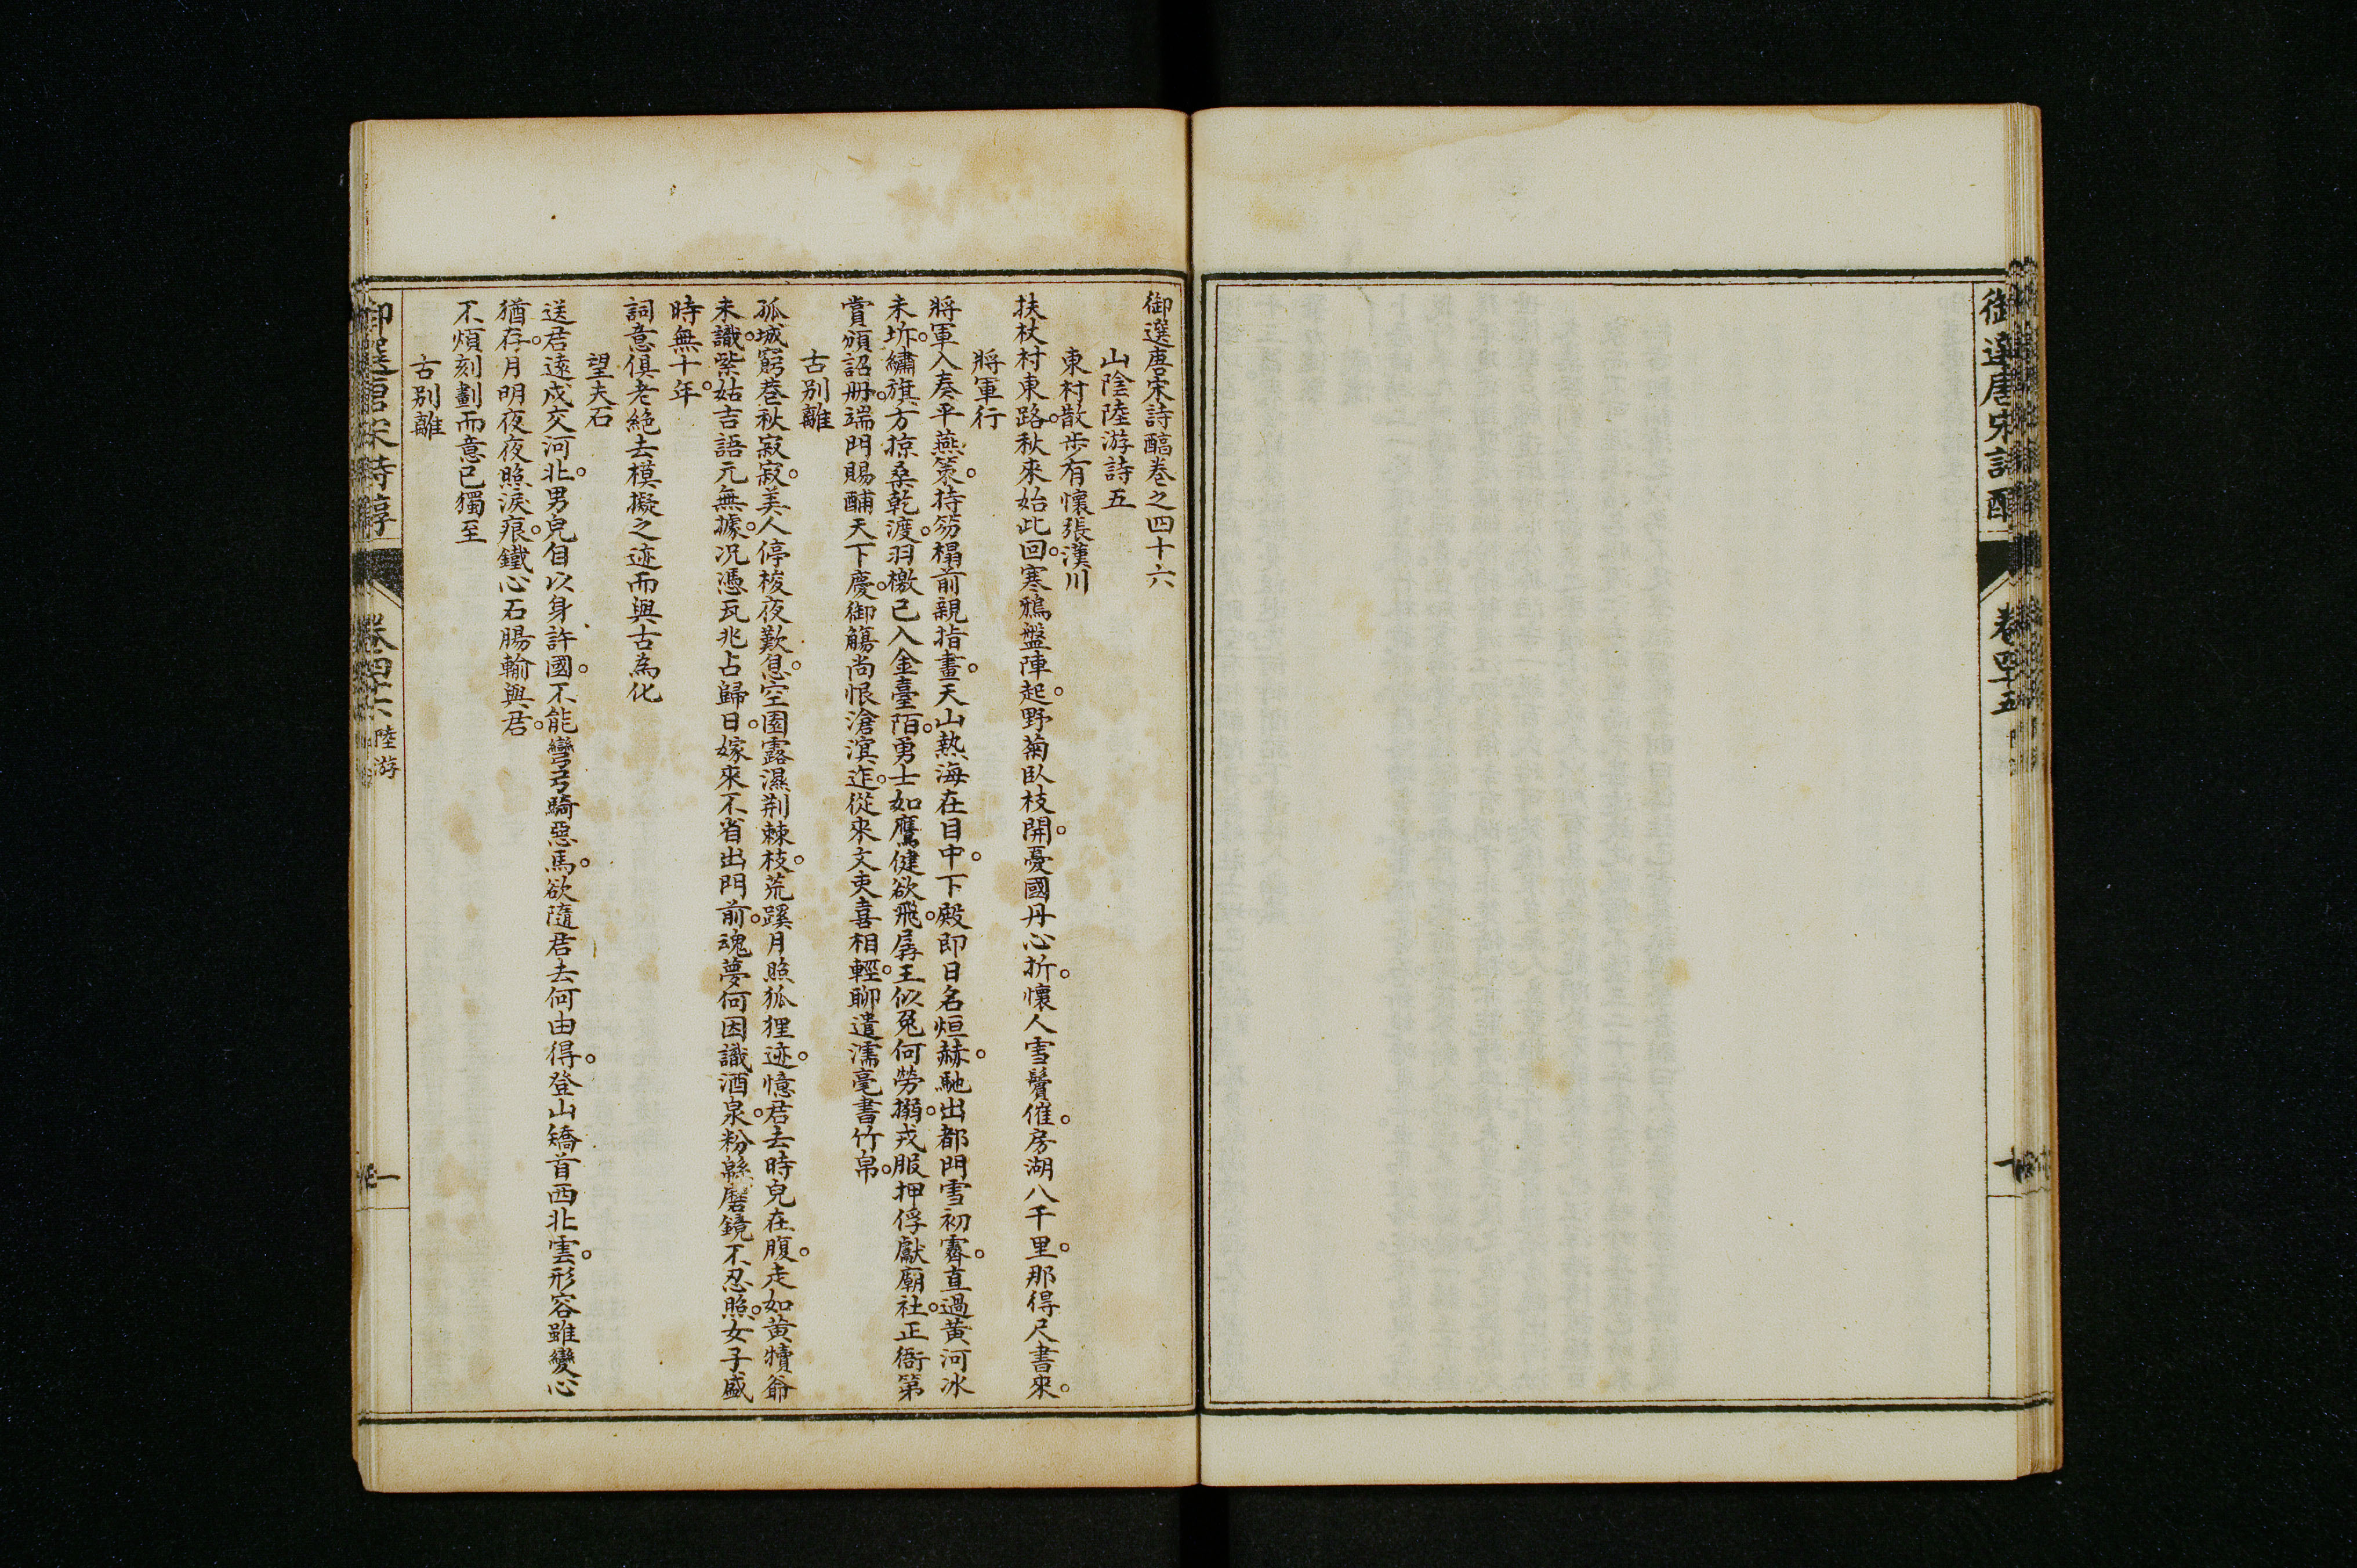 御選唐宋詩醇
卷四十五
御選唐宋詩醕卷之四十六
山陰陸游詩五
東村散步有懷張漢川
扶杖村東路。秋來始此回。寒鴉盤陣起。野菊臥枝開。憂國丹心折。懷人雪鬢催。房湖八千里。那得尺書來。
將軍行
將軍入奏平燕策。持笏榻前親指畫。天山熱海在目中。下殿即日名烜赫。馳出都門雪初霽。直過黃河冰
未坼。繡旗方掠桑乾渡。羽檄已入金臺陌。勇士如鷹健欲飛。孱王似兔何勞搦。戎服押俘獻廟社。正衙第
賞頒詔册。端門賜酺天下慶。御觴尚恨滄溟迮。從來文吏喜相輕。聊遣濡毫書竹帛。
古别離
孤城窮巷秋寂寂。美人停梭夜歎息。空園露濕荆棘枝。荒蹊月照狐狸迹。憶君去時兒在腹。走如黃犢爺
未識。紫姑吉語元無據。况憑瓦兆占歸日。嫁來不省出門前。魂夢何因識酒泉。粉緜磨鏡不忍照。女子盛
時無十年。
詞意俱老絶去模擬之迹而與古為化
望夫石
送君遠戍交河北。男兒自以身許國。不能彎弓騎惡馬。欲隨君去何由得。登山矯首西北雲。形容雖變心
猶存。月明夜夜照淚痕。鐵心石腸輸與君。
不煩刻劃而意已獨至
古别離
御選唐宋詩醇
卷四十六
陸游
一